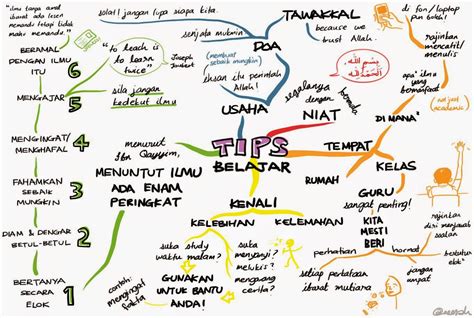 "ilmu tanpa amal
ibarat ada lesen
memandu tetapi tidak
mahu memandu."
BERAMAL
DENGAN ILMU
ITU
6
MENGAJAR
5
MENGINGAT/
MENGHAFAL
4
FAHAMKAN
SEBAIK
MUNGKIN
3
DIAM & DENGAR
BETUL-BETUL
2
BERTANYA
SECARA
ELOK
1
solat! jangan lupa siapa kita.
"to teach is
to learn
twice"
Joseph
Joubert
sila jangan
kedekut ilmu
menurut
Ibn Qayyim,
MENUNTUT ILMU
ADA ENAM
PERINGKAT
senjata mukmin
DOA
TAWAKKAL
because we
trust Allah.
(membuat
sebaik mungkin)
ingat itu perintah
Allah!
USAHA
بسم الله
الحمد لله
segalanya
dengan
bermula
NIAT
TIPS
BELAJAR
TEMPAT
DI MANA²
di fon/laptop
pun boleh!
rajinkan
mencatit/
menulis
apa² ilmu
yang
bermanfaat
(not just
academic)
RUMAH
KELAS
GURU
sangat penting!
KITA
MESTI
BERI
perhatian
hormat
setiap perkataan
ibarat mutiara
jangan
ampat
rajinkan
diri menjawab
soalan
betulkan
diri
KENALI
KELEBIHAN
KELEMAHAN
suka study
waktu malam?
suka
menyanyi?
melukis?
mengarang
cerita?
GUNAKAN
UNTUK BANTU
ANDA!
contoh:
mengingat
fakta